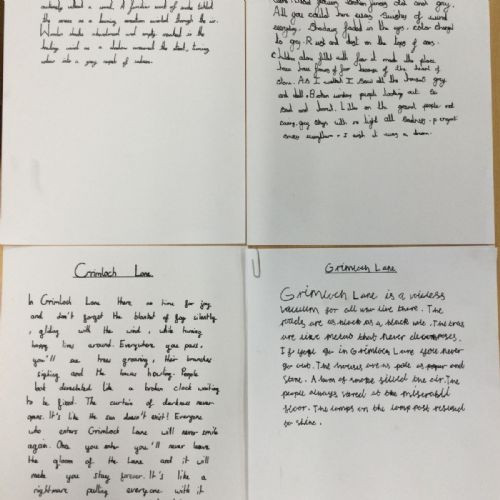 actively without a sound. A familiar sound of smoke tickled
the senses as a burning sensation swirled through the air.
Wonder smoke abandoned and empty, washed in the
as a shadow covered the street, turning
colour into a grey aspect of sadness.
old and grey.
All you could hear was swishy of wind
everyday. Shadows faded in the eyes, color changed
to grey. Rust and dust on the tops of cars.
Children alone filled with fear it made the place
have have of fear because of the heart of
stone. As I walked I saw all the houses grey
and dull. Broken windows people looking out so
sad and bored. Litter on the ground people not
caring. grey skys with no light all sadness.
cross everywhere. I wish it was a dream.
Grimloch Lane
In Grimloch Lane there, no time for joy
and don't forget the blanket of fog silently,
gliding with the wind, while turning
happy lives around. Everywhere you pass,
you'll see trees groaning, their branches
sighing and the leaves howling. People
look derelicted like a broken clock waiting
to be fixed. The curtain of darkness never
opens. It's like the sun doesn't exist! Everyone
who enters Grimloch Lane will never smile
again. Once you enter you'll never leave
the gloom of the Lane and it will
make you stay forever. It's like a
nightmare pulling everyone with it
Grimloch Lane
Grimloch Lane is a voiceless
vacuum for all who live there. The
roads are as black as a black hole. The trees
are like metal that never decomposes.
If you go in Grimloch Lane you never
go out. The houses are as pale as paper and
stone. A layer of smoke filled the air. The
people always stared at the miserable
floor. The lamps on the lamp post refused
to shine.